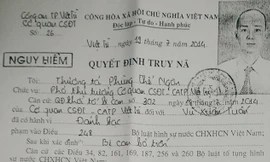 Công an TP Việt Trì
Cơ quan CSĐT
Số: 26
CỘNG HÒA XÃ HỘI CHỦ NGHĨA VIỆT NAM
Độc lập - Tự do - Hạnh phúc
Việt Trì, 19 tháng 2 năm 2014
NGUY HIỂM
QUYẾT ĐỊNH TRUY NÃ
Tôi: Thượng tá Phùng Thế Ngân
Chức vụ: Phó thủ trưởng Cơ quan CSĐT - CATP Việt Trì
Căn cứ QĐ khởi tố bị can số: 302
CSĐT - CATP Việt Trì đối với Vũ Xuân Tuấn
đã có hành vi Đánh bạc
phạm vào Điều 248 Bộ luật hình sự nước CHXHCN Việt Nam
Sau khi xác định: Bị can bỏ trốn
Căn cứ các Điều 34, 82, 161, 169, 187, 256 và 260 Bộ luật tố tụng hình sự
nước CHXHCN Việt Nam